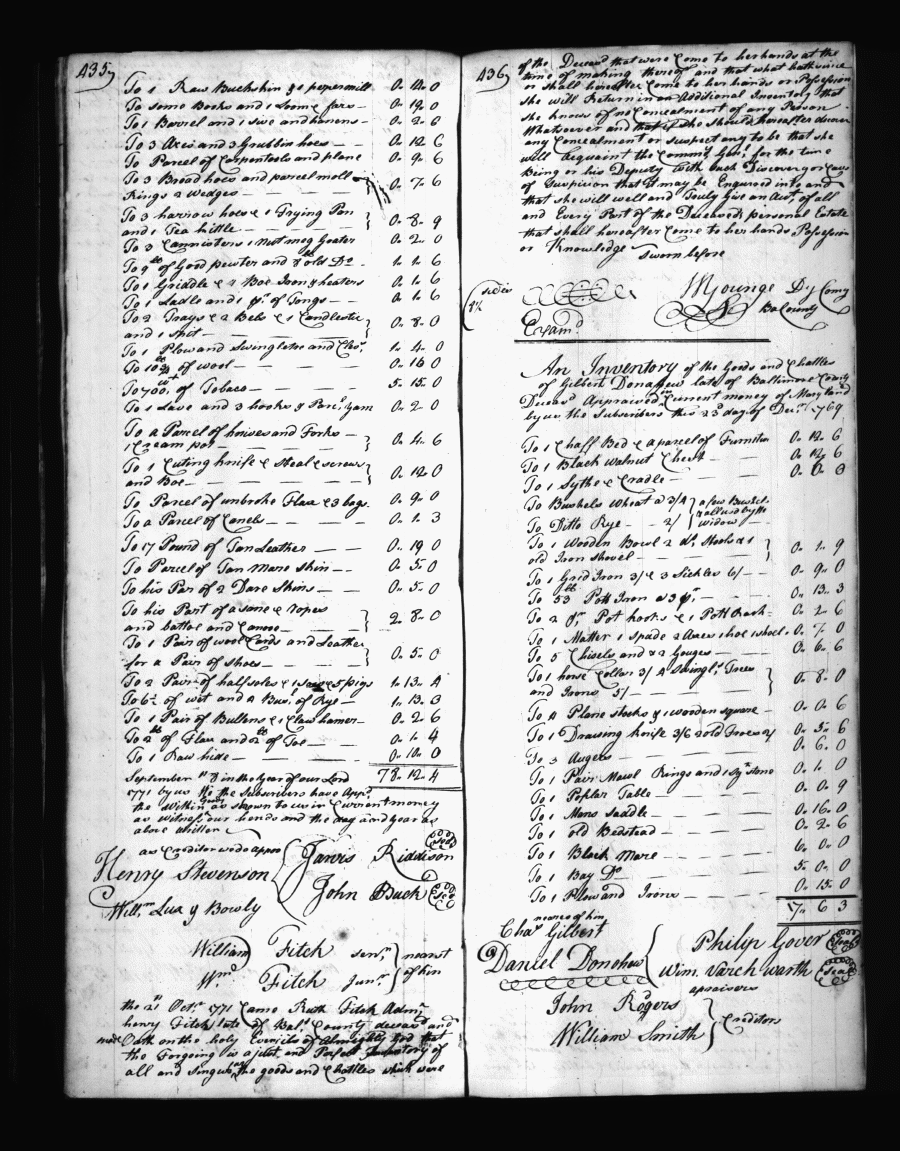 435
To 1 Raw Buckskin & 1 pepermill 0..14..0
To some Books and 1 Loome fars — 0..19..0
To 1 Barrel and 1 sive and — 0..2..6
To 3 Axes and 3 Grubbin hoes — — 0..12..6
To Parcel of Carpentools and plane 0..9..6
To 3 Broad hoes and parcel moll
Rings 2 Wedges — — — 0..7..6
To 3 harrow hoes & 1 Frying Pan
and 1 Tea kittle — — — 0..8..9
To 3 Cannisters 1 Nutmeg Grater 0..2..0
To 9lb of Good pewter and 8lb old Do 1..1..6
To 1 Griddle & 2 Boe Iron & heaters 0..1..6
To 1 Ladle and 1 pr of Tongs — — 0..1..6
To 2 Trays & 2 Bels & 1 Candlestic
and 1 spit — — — 0..8..0
To 1 Plow and Swingletree and Clevs 1..4..0
To 10 lb of wool — — — 0..16..0
To 700 wt of Tobaco — — — 5..15..0
To 1 and 3 hooks & Parl yarn 0..2..0
To a Parcel of knives and Forks —
1 Cream pot — — — 0..4..6
To 1 Cuting knife & Steal & screws
and Boe — — — 0..12..0
To Parcel of unbroke Flax & 3 bags 0..9..0
To a Parcel of — — — 0..1..3
To 17 Pound of Tan Leather — — 0..19..0
To Parcel of Tan Mare Skin — — 0..5..0
To his Par of 2 Dare Skins — — 0..5..0
To his Part of a sone & ropes
and battoe and Canooe — — — 2..8..0
To 1 Pair of wool Cards and Leather
for a Pair of Shoes — — — 0..5..0
To 2 Pair of half soles & 1 sow & 5 pigs 1..13..4
To 6 of wet and 2 Bus. of Rye — 1..13..3
To 1 Pair of Bullens & 1 Claw hamer — 0..2..6
To 2lb of Flax and 2lb of Toe — — 0..1..4
To 1 Raw hide — — — 0..10..0
September 8 in the year of our Lord 78..12..4
1771 by us We the Subscribers have Appd
the Within Goods as shown to us in Current money
as witness our hands and the day and year as
above Written
as Creditor wedo appro
Henry Stevenson
Jarvis Riddison Seal
John Buck Seal
Willm Lux & Bowly
William Fitch Senr nearest
Wm Fitch Junr of kin
the 21st Octr 1771 Came Ruth Fitch Admx
henry Fitch late of Balt County deceasd and
made Oath on the holy Evenjils of Almighty God that
the Forgoing is a just and Perfect Inventory of
all and Singular the goods and Chattles which were
436
of the Deceasd that were Come to her hands at the
time of making thereof and that what hath since
or shall hereafter Come to her hands or Possession
she will Return in an Additional Inventory that
she knows of no Concealment of any Person
Whatsoever and that if she should hereafter discover
any Concealment or suspect any to be that she
will Acquaint the Commy Genl for the time
Being or his Deputy with such Discovery or Cause
of Suspicion that it may be Enquired into and
that she will well and Truly Give an Act. of all
and Every Part of the Deceaseds personal Estate
that shall hereafter Come to her hands Possession
or Knowledge
Sworn before
sides
MYounge Dy Comy
Ba County
Examd
An Inventory of the Goods and Chattles
of Gilbert Donahew late of Baltimore County
Deceasd Appraised in Current money of Maryland
by us the Subscribers this 23d day of Decr 1769
To 1 Chaff Bed & a parcel of Furnitur 0..12..6
To 1 Black Walnut Chest — — 0..12..6
To 1 Sythe & Cradle — — —
To Bushels Wheat a 3/4 a few Bushels
To Ditto Rye — — 2/ all used by the widow —
To 1 Wooden Bowl 2 do Stools & 1
old Iron Shovel — — — 0..1..9
To 1 Grid Iron 3/ & 3 Sickles 6/ — 0..9..0
To 53 lb Pott Iron a 3 pr. — — 0..13..3
To 2 pr. Pot hooks & 1 Pott Rack — 0..2..6
To 1 Matter 1 Spade 2 Axes 1 hoe 1 wheel 0..7..0
To 5 Chisels and & 2 Gouges — — 0..6..6
To 1 horse Collar 3/ 4 Swingl. Trees
and Irons 5/ — — — 0..8..0
To 4 Plane stocks & 1 wooden square — 0..0..6
To 1 Drawing knife 3/6 2 old Froes 2/ 0..5..6
To 3 Augers — — — 0..6..0
To 1 Pair Maul Rings and 1 Gr. stone 0..1..0
To 1 Poplar Table — — — 0..0..9
To 1 Mans Saddle — — — 0..16..0
To 1 old Bedstead — — — 0..2..6
To 1 Black Mare — — — 6..0..0
To 1 Bay Do — — — 5..0..0
To 1 Plow and Irons — — — 0..15..0
7..6..3
nearce of kin
Chas Gilbert
Daniel Donohow
Philip Gover Seal
Wim. Varch warth Seal
apraisers
John Rogers
William Smith
Creditors